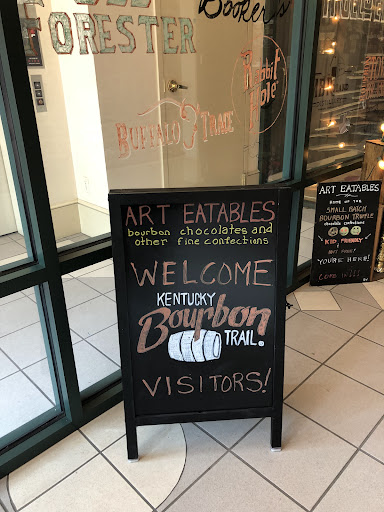 FORESTER
Booker's
Rabbit
Hole
BUFFALO TRACE
ART EATABLES
bourbon chocolates and
other fine confections
WELCOME
KENTUCKY
Bourbon
TRAIL
VISITORS!
ART EATABLES
HOME OF THE
SMALL BATCH
BOURBON TRUFFLE
chocolate confections
KID FRIENDLY
YOU'RE HERE!
COME IN!!!